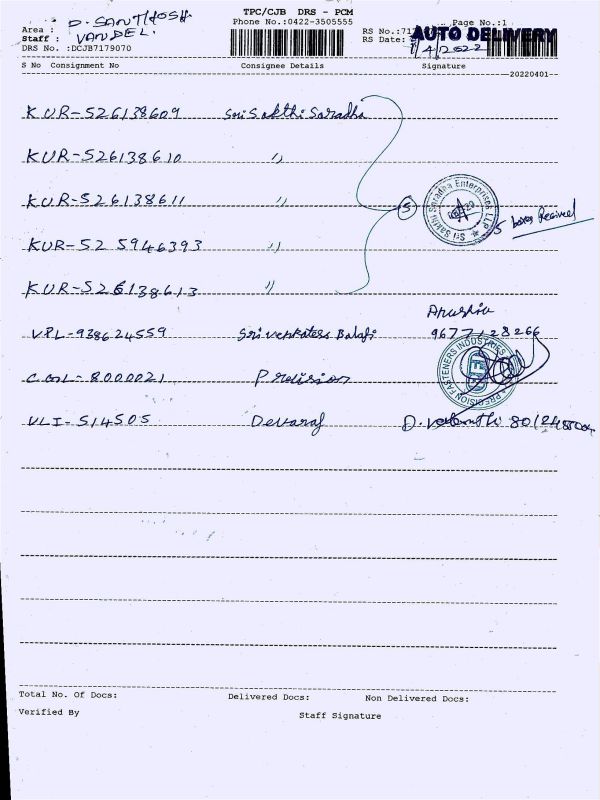 TPC/CJB DRS - PCM
D. SANTHOSH
Area :
Phone No.:0422-3505555
Page No.:1
Staff : VANDEL.
RS No.:
AUTO DELIVERY
DRS No. :DCJB7179070
RS Date:
1/4/2022
S No Consignment No Consignee Details Signature
20220401
KUR-526138609 Sri Sakthi Saradha
KUR-526138610 ''
KUR-526138611 '' 5
Sri Sakthi Saradha Enterprises LLP
5 boxes Received
KUR-525946393 ''
KUR-526138613 ''
VPL-938624559 Sri venkatess Balaji 9677128266
PRECISION FASTENERS INDUSTRIES
- 8000021 Precision
VLI-514505 Devaraj
Total No. Of Docs: Delivered Docs: Non Delivered Docs:
Verified By Staff Signature